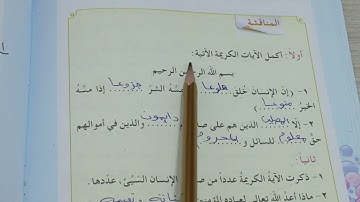 المناقشة
أولا: أكمل الآيات الكريمة الآتية:
بسم الله الرحمن الرحيم
١ - إن الإنسان خلق هلوعا مسه الشر جزوعا إذا مسه
الخير منوعا
٢ - إلا المصلين الذين هم على دائمون والذين في أموالهم
حق معلوم للسائل و
ثانياً:
١ - ذكرت الآية الكريمة عدداً من الإنسان السيئ، عددها.
٢ - ماذا أعد الله تعالى لعباده المؤمنين